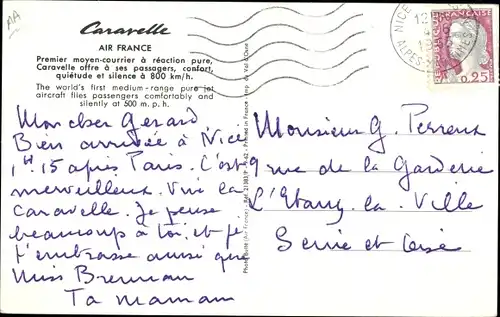 AA
Caravelle
AIR FRANCE
Premier moyen-courrier à réaction pure,
Caravelle offre à ses passagers, confort,
quiétude et silence à 800 km/h.
The world's first medium-range pure jet
aircraft flies passengers comfortably and
silently at 500 m. p. h.
Mon cher Gerard
Bien arrivée à Nice
1H.15 après Paris. C'est
merveilleux. Vive la
Caravelle. Je pense
beaucoup à toi. et je
t'embrasse ainsi que
Miss Brennan
Ta maman
Printed in France
NICE
ALPES-MMES
0,25
Monsieur G. Perreux
9 rue de la Garderie
L'Etang. la. Ville
Seine et Oise